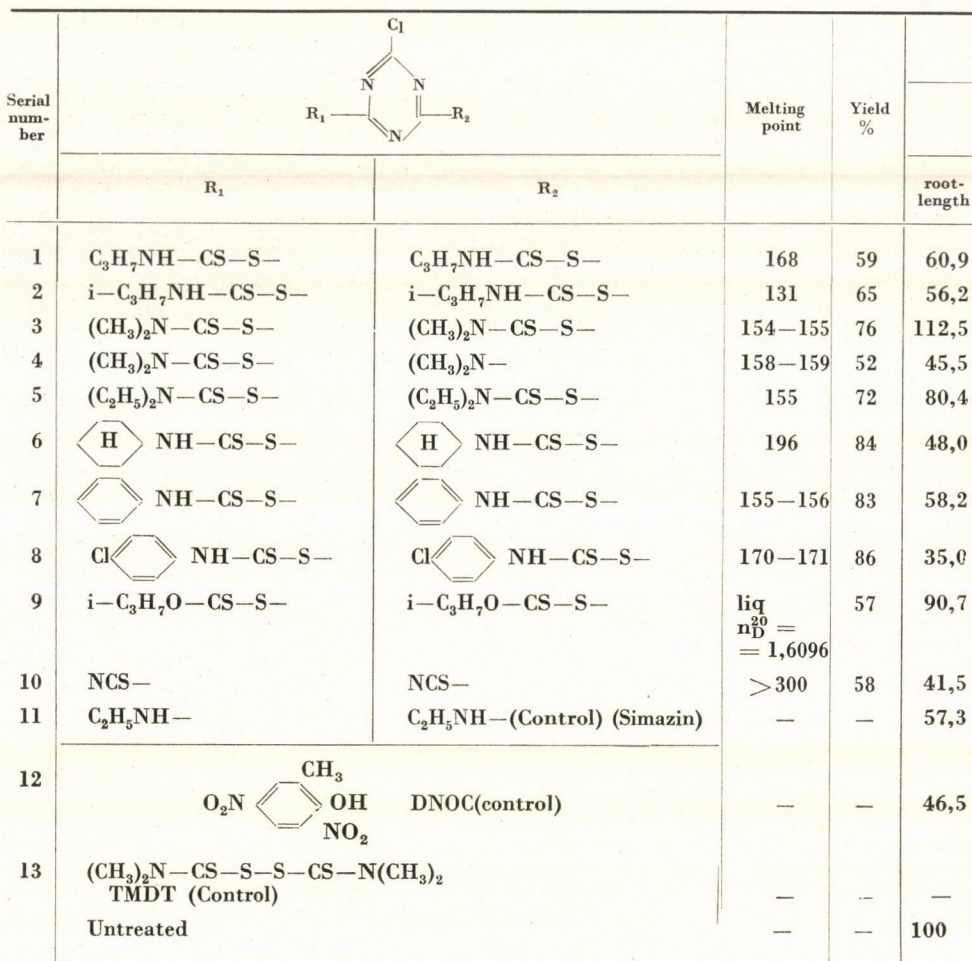 Cl
N N
R₁— —R₂
N
Serial num- ber Melting point Yield %
R₁ R₂ root- length
1 C₃H₇NH—CS—S— C₃H₇NH—CS—S— 168 59 60,9
2 i—C₃H₇NH—CS—S— i—C₃H₇NH—CS—S— 131 65 56,2
3 (CH₃)₂N—CS—S— (CH₃)₂N—CS—S— 154—155 76 112,5
4 (CH₃)₂N—CS—S— (CH₃)₂N— 158—159 52 45,5
5 (C₂H₅)₂N—CS—S— (C₂H₅)₂N—CS—S— 155 72 80,4
6 H NH—CS—S— H NH—CS—S— 196 84 48,0
7 NH—CS—S— NH—CS—S— 155—156 83 58,2
8 Cl NH—CS—S— Cl NH—CS—S— 170—171 86 35,0
9 i—C₃H₇O—CS—S— i—C₃H₇O—CS—S— liq 57 90,7
n²⁰D =
= 1,6096
10 NCS— NCS— >300 58 41,5
11 C₂H₅NH— C₂H₅NH—(Control) (Simazin) — — 57,3
12 CH₃
O₂N OH DNOC(control) — — 46,5
NO₂
13 (CH₃)₂N—CS—S—S—CS—N(CH₃)₂
TMDT (Control) — — —
Untreated — — 100